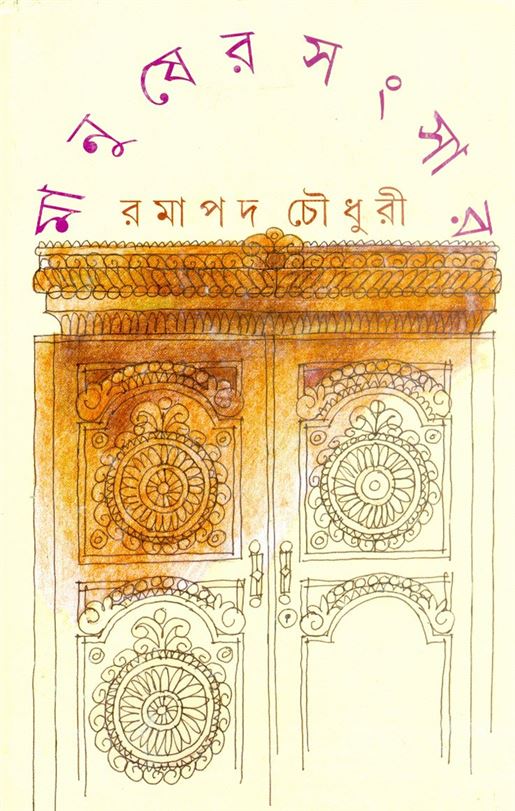 মানুষের সংসার
রমাপদ চৌধুরী